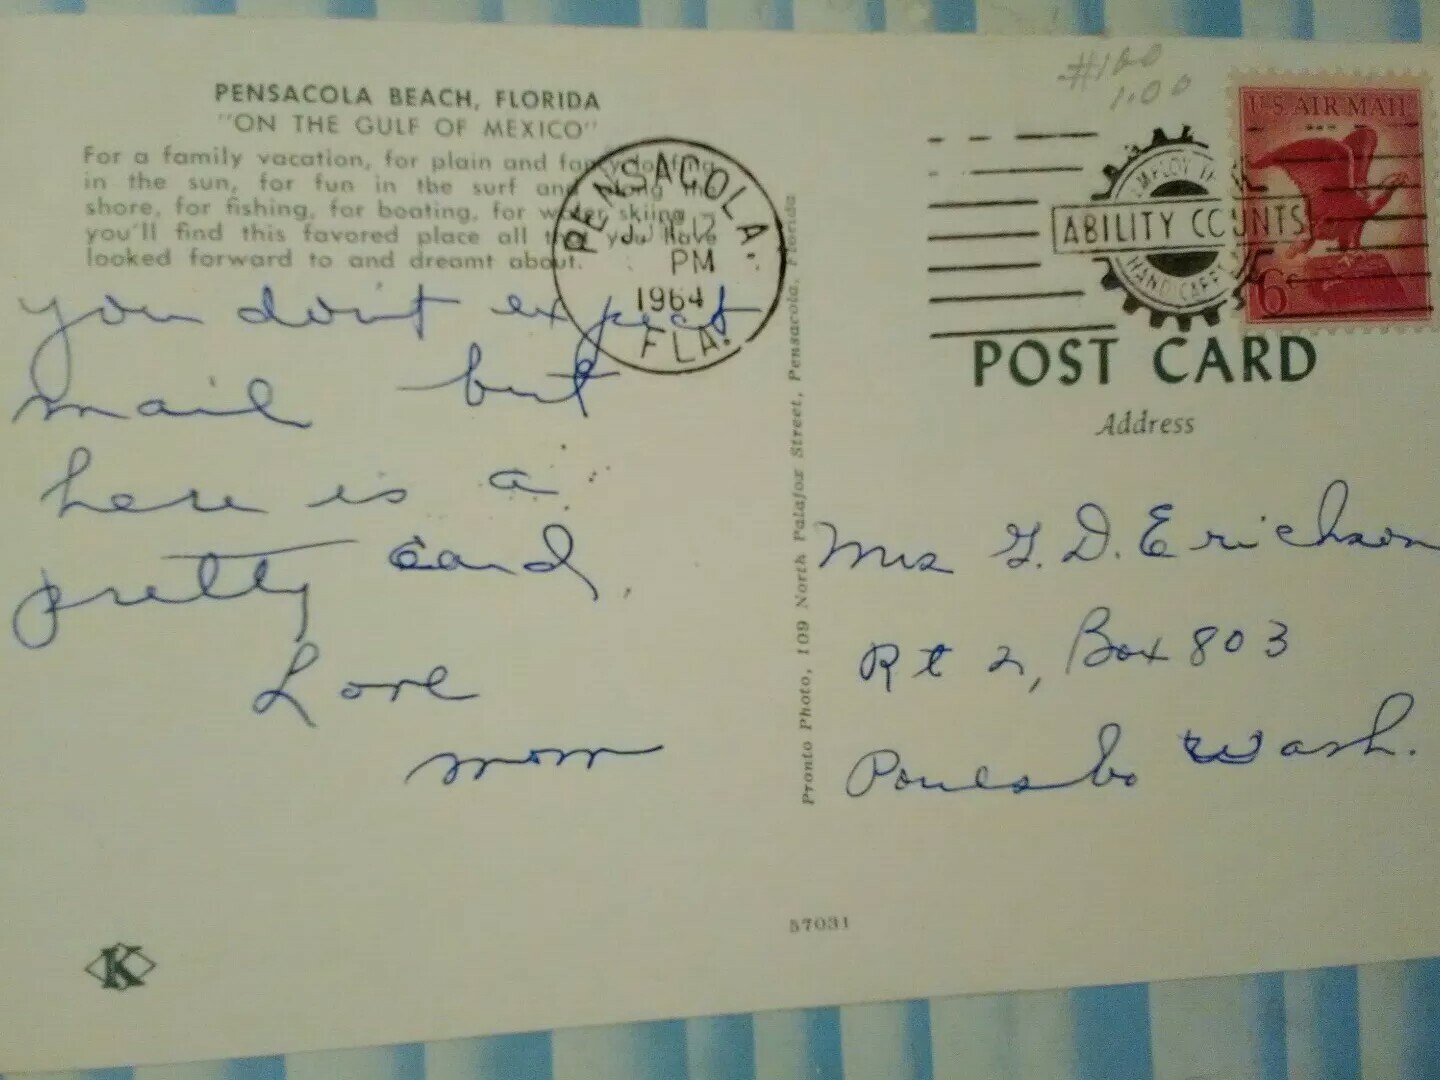 PENSACOLA BEACH, FLORIDA
"ON THE GULF OF MEXICO"
For a family vacation, for plain and fancy loafing
in the sun, for fun in the surf and along the
shore, for fishing, for boating, for water skiing
you'll find this favored place all that you have
looked forward to and dreamt about.
you don't expect
mail but
here is a
pretty card,
Love
mom
PENSACOLA.
PM
1964
FLA.
Pronto Photo, 109 North Palafox Street, Pensacola, Florida
#160
1.00
ABILITY COUNTS
U.S. AIR MAIL
6c
POST CARD
Address
Mrs G. D. Erickson
Rt 2, Box 803
Poulsbo Wash.
57031
K